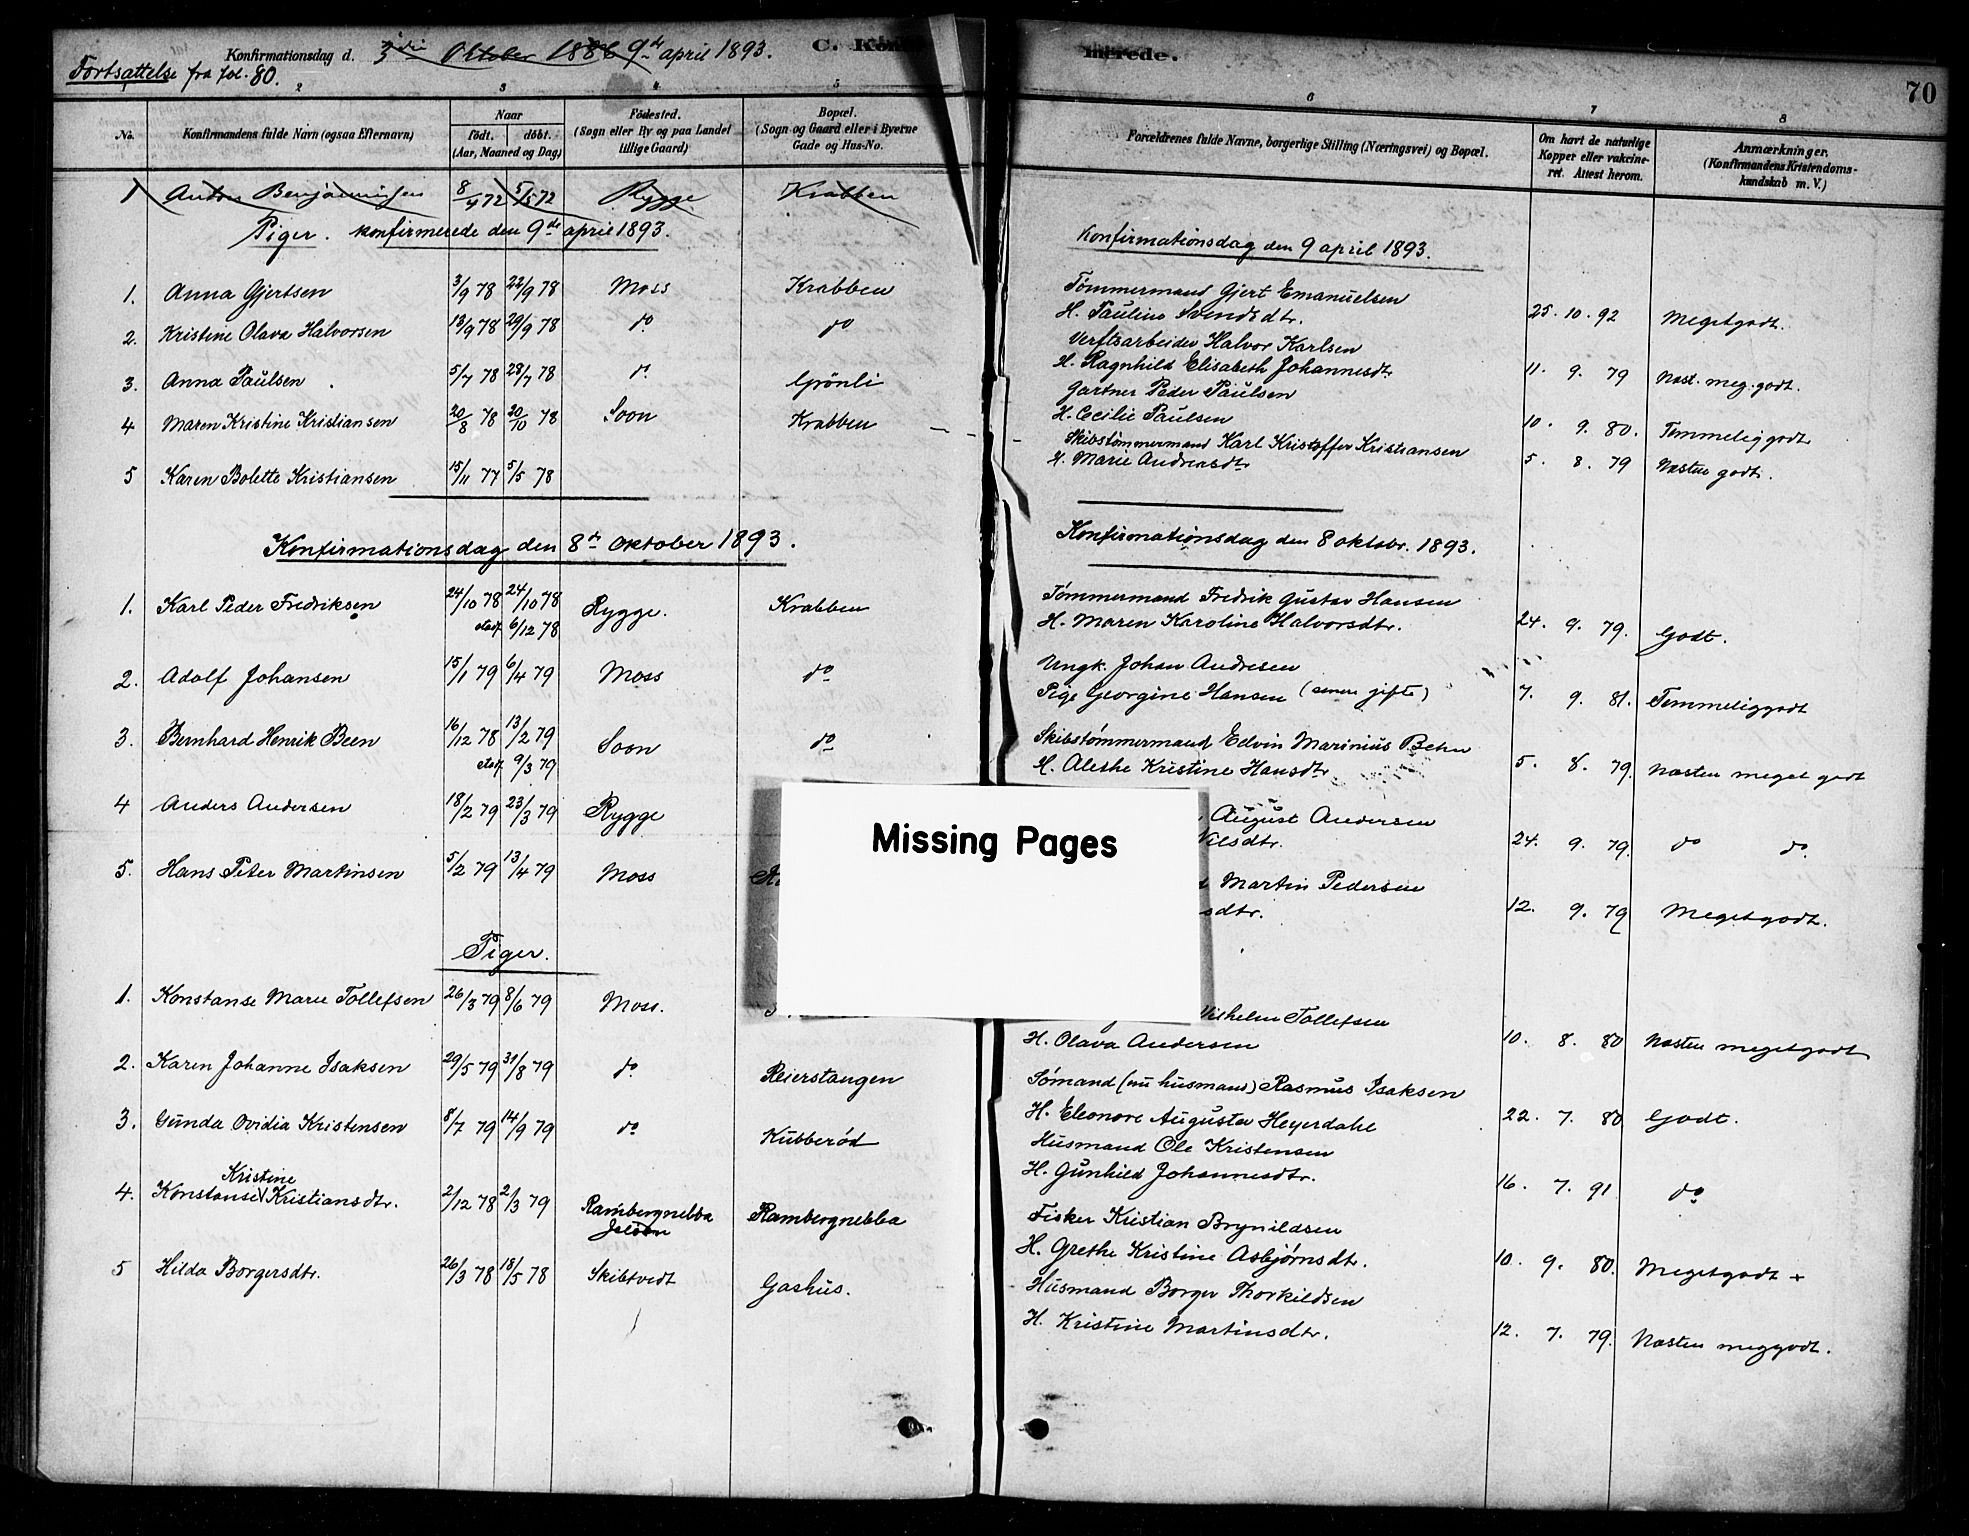 Konfirmationsdag d. 3die Oktober 1886 9de april 1893. C. Konf
Fortsættelse fra fol. 80.
2 3 4 5
No. Konfirmandens fulde Navn (ogsaa Efternavn) Naar født. døbt. (Aar, Maaned og Dag) Fødested. (Sogn eller By og paa Landet tillige Gaard) Bopæl. (Sogn og Gaard eller i Byerne Gade og Hus-No.
1 Benjaminsen 8/4 72 5/5 72 Rygge Krabben
Piger. konfirmerede den 9de april 1893.
1. Anna Gjertsen 3/9 78 22/9 78 Moss Krabben
2. Kristine Olava Halvorsen 13/9 78 29/9 78 do do
3. Anna Paulsen 5/7 78 28/7 78 do Grönli
4 Maren Kristine Kristiansen 20/8 78 20/10 78 Soon Krabben
5 Karen Bolette Kristiansen 15/11 77 5/5 78
Konfirmationsdag den 8de oktober 1893.
1. Karl Peder Fredriksen 24/10 78 24/10 78 Rygge. Krabben
stadf 6/12 78
2. Adolf Johansen 15/1 79 6/4 79 Moss do
3. Bernhard Henrik Been 16/12 78 13/2 79 Soon do
stadf 9/3 79
4 Anders Andersen 18/2 79 23/3 79 Rygge
5. Hans Peter Martinsen 5/2 79 13/4 79 Moss
Piger.
1. Konstanse Marie Tollefsen 26/3 79 8/6 79 Moss.
2. Karen Johanne Isaksen 29/5 79 31/8 79 do Reierstangen
3. Gunda Ovidia Kristensen 8/7 79 14/9 79 do Kubberød
Kristine
4. Konstanse Kristiansdtr. 2/12 78 2/3 79 Rambergnebba Rambergnebba
Jeløen
5 Hilda Borgersdtr. 26/3 78 18/5 78 Skibtvedt Gashus.
Missing Pages
merede. 70
6 7 8
Forældrenes fulde Navne, borgerlige Stilling (Næringsvei) og Bopæl. Om havt de naturlige Kopper eller vakcineret. Attest herom. Anmærkninger. (Konfirmandens Kristendomskundskab m. V.)
Konfirmationsdag den 9 april 1893.
Tømmermand Gjert Emanuelsen
H. Pauline Svendsdtr. 25. 10. 92 Megetgodt.
Verftsarbeider Halvor Karlsen
H. Ragnhild Elisabeth Johannesdtr 11. 9. 79 Næst. meg. godt.
Gartner Peder Paulsen
H. Cecilie Paulsen 10. 9. 80. Temmeliggodt
Skibstømmermand Karl Kristoffer Kristiansen
H. Marie Andreasdtr 5. 8. 79 Næsten godt.
Konfirmationsdag den 8 oktobr. 1893.
Tømmermand Fredrik Gustav Hansen
H. Maren Karoline Halvorsdtr. 24. 9. 79. Godt.
Ungk. Johan Andresen
Pige Georgine Hansen (senere gifte) 7. 9. 81. Temmeliggodt
Skibstømmermand Edvin Marinius Behn
H. Alethe Kristine Hansdtr 5. 8. 79. Næsten meget godt
August Andersen
Nilsdtr. 24. 9. 79. do do
Martin Pedersen
sdtr. 12. 9. 79 Megetgodt.
Vilhelm Tollefsen
H. Olava Andersen 10. 8. 80 Næsten megetgodt
Sømand (nu husmand) Rasmus Isaksen
H. Eleonore Augusta Heyerdahl 22. 7. 80 Godt.
Husmand Ole Kristensen
H. Gunhild Johannesdtr. 16. 7. 91 do
Fisker Kristian Brynildsen
H. Grethe Kristine Asbjørnsdtr. 10. 9. 80. Megetgodt +
Husmand Borger Thorkildsen
H. Kristine Martinsdtr. 12. 7. 79. Næsten meggodt.